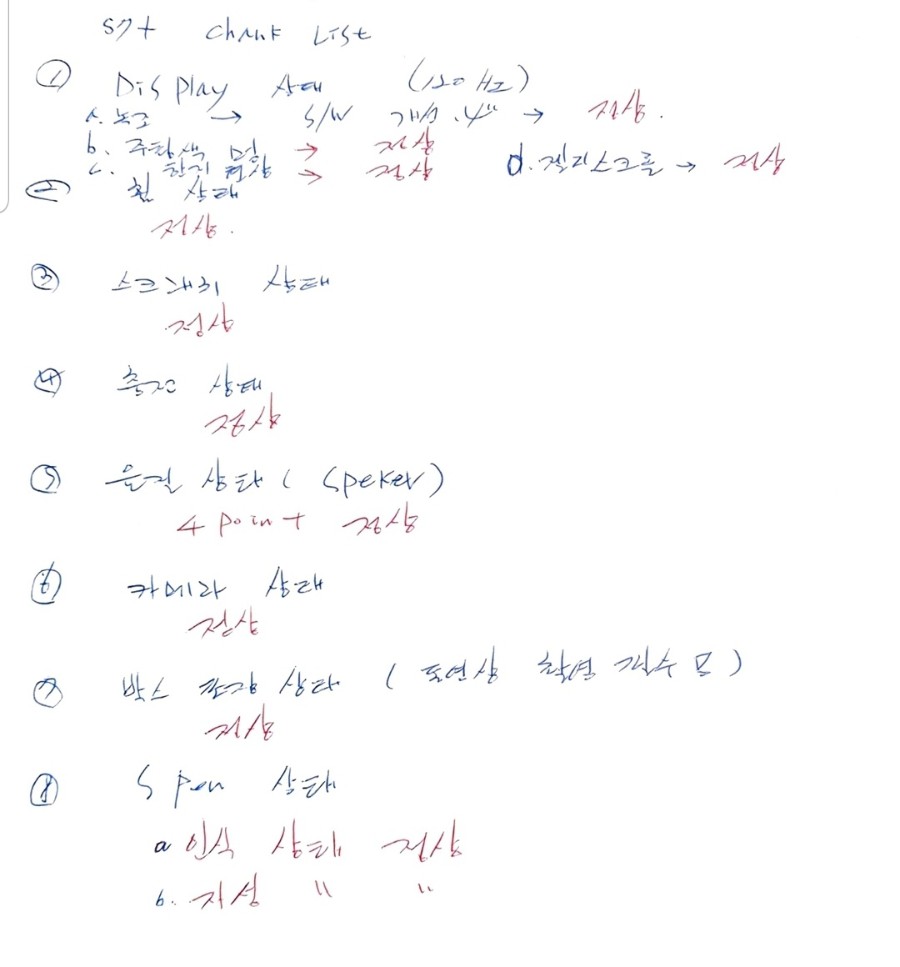 S7+ Chank List
① DiSplay 상태 (120Hz)
a. 녹조 → S/W → 정상.
b. 주황색 멍 → 정상
c. 한지 현상 → 정상 d. 젤리스크롤 → 정상
② 휨 상태
정상.
③ 스크래치 상태
정상
④ 충전 상태
정상
⑤ 음질 상태 ( Speker)
4 point 정상
⑥ 카메라 상태
정상
⑦ 박스 포장 상태 ( 동영상 촬영 개수 中 )
정상
⑧ S pen 상태
a 인식 상태 정상
b. 자성 〃 〃